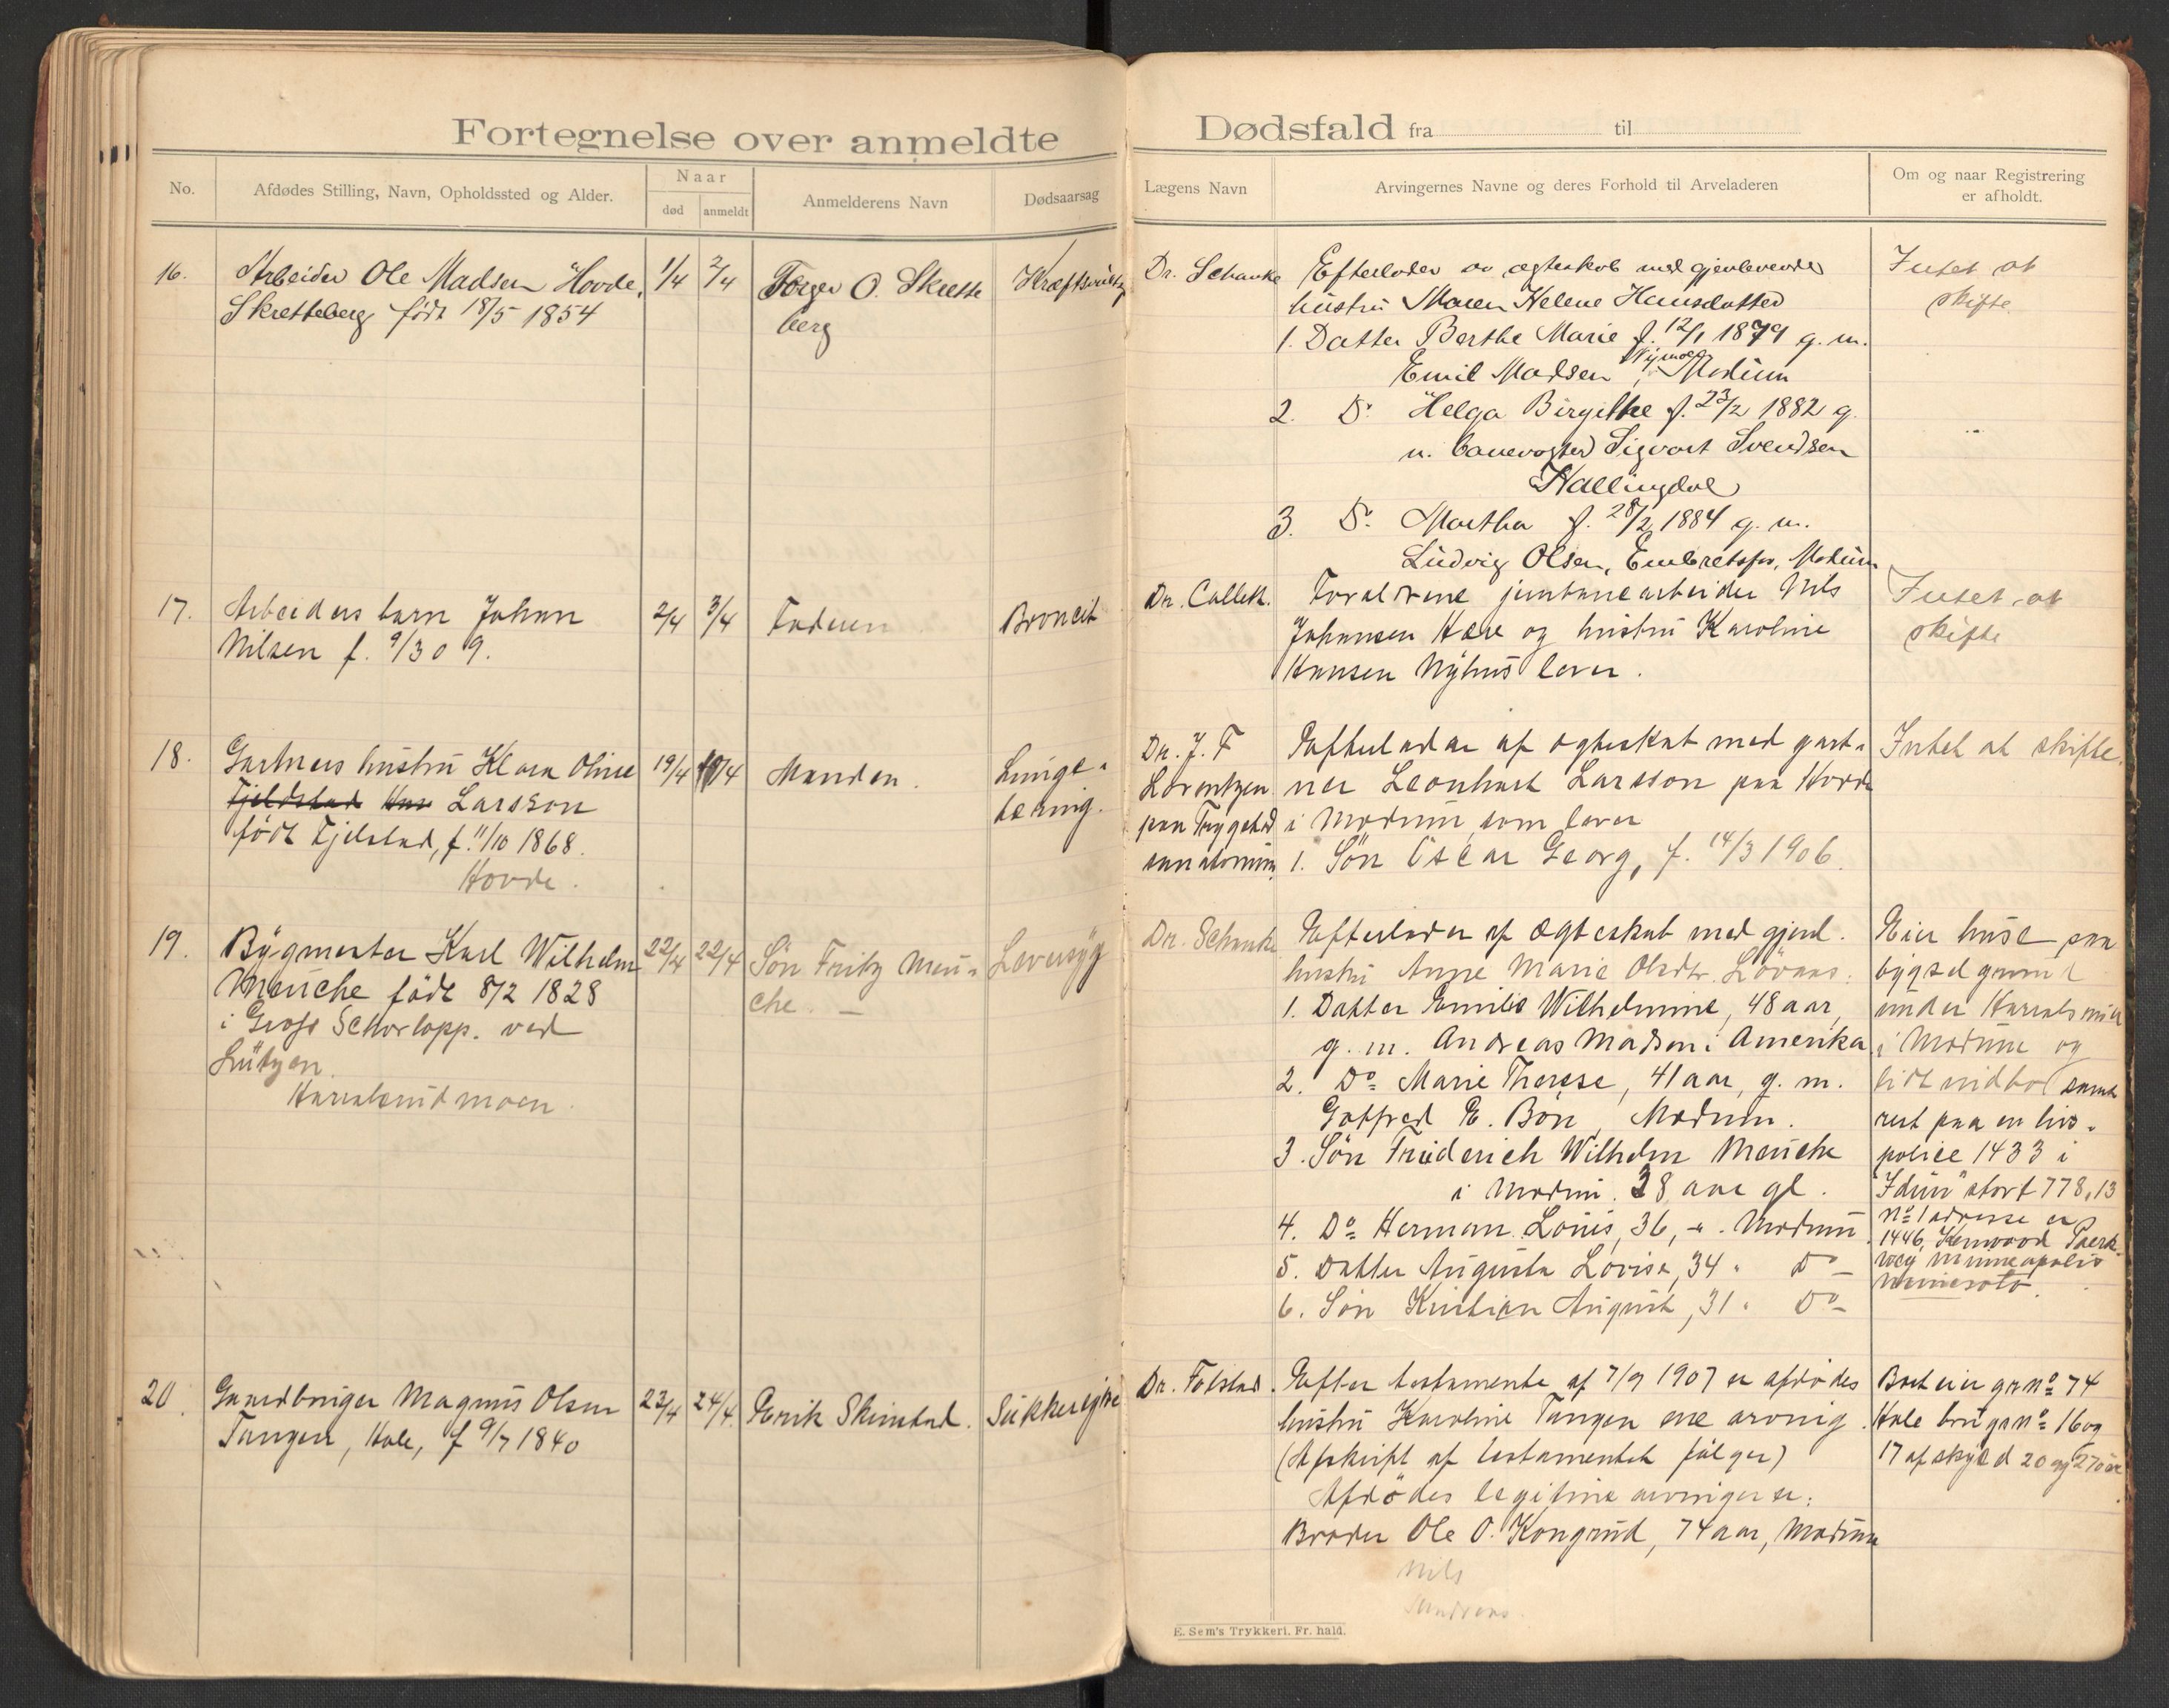 Fortegnelse over anmeldte
Dødsfald fra til
No.
Afdødes Stilling, Navn, Opholdssted og Alder.
Naar
død
anmeldt
Anmelderens Navn
Dødsaarsag
Lægens Navn
Arvingernes Navne og deres Forhold til Arveladeren
Om og naar Registrering
er afholdt.
16.
Arbeider Ole Madsen Hovde,
Skretteberg født 18/5 1854
1/4
2/4
Torger O. Skrette
berg
Kræftsvulst
Dr. Schanke
Efterlader av ægteskab med gjenlevende
hustru Maren Helene Hansdatter
1. Datter Berthe Marie f. 12/1 1879 g. m.
Emil Madsen, Modum
2. Do Helga Birgitte f. 23/2 1882 g.
m. banevogter Sigvart Svendsen
Hallingdal
3. Do Martha f. 28/2 1884 g. m.
Ludvig Olsen, Embretsfos, Modum
Intet at
skifte.
17.
Arbeiders barn Johan
Nilsen f. 9/3 09.
2/4
3/4
Faderen
Broncit
Dr. Collett.
Forældrene jernbanearbeider Nils
Johansen Aase og hustru Karoline
Hansen Nyhus lever.
Intet at
skifte
18.
Gartners hustru Klara Oline
Fjeldstad Larsson
født Fjelstad, f. 11/10 1868.
Hovde.
19/4
19/4
Manden.
Lunge-
tæring.
Dr. J. F
Lorentzen
paa Tryggestad
sanatorium
Efterlader af ægteskab med gart-
ner Leonhart Larsson paa Hovde
i Modum som lever
1. Søn Oscar Georg, f. 14/3 1906.
Intet at skifte.
19.
Bygmester Karl Wilhelm
Meuche født 8/2 1828
i Gross Schorlopp. ved
Lützen.
Haraldsrudmoen.
22/4
22/4
Søn Fritz Meu-
che. –
Leversyg
Dr. Schanke
Efterlader af ægteskab med gjenl.
hustru Anne Marie Olsdtr. Løvaas:
1. Datter Emilie Wilhelmine, 48 aar,
g. m. Andreas Madsen i Amerika
2. Do Marie Therese, 41 aar, g. m.
Gotfred E. Bøn, Modum.
3. Søn Friederich Wilhelm Meuche
i Modum. 38 aar gl.
4. Do Herman Louis, 36, –. Modum.
5. Datter Augusta Lovise, 34 " Do –
6. Søn Kristian August, 31 " Do –
Eier huse paa
bygselgrund
under
i Modum og
lidt indbo samt
ret paa en livs-
police 1433 i
"Idun" stort 778,13
No 1 adresse er
1446, Kenwood Park-
way Minneapolis
Minnesota.
20.
Gaardbruger Magnus Olsen
Tangen, Hole, f 9/7 1840
23/4
24/4.
Erik Skinstad.
Sukkersyge
Dr. Folstad.
Efter testamente af 7/9 1907 er afdødes
hustru Karoline Tangen ene arving.
(Afskrift af testamentet følger)
Afdødes legitime arvinger er:
Broder Ole O. Kongsrud, 74 aar, Modum
Nils
Boet eier grno 74
Hole brugsno 16 og
17 af skyld 20 og 270 ør
E. Sem's Trykkeri, Fr. hald.